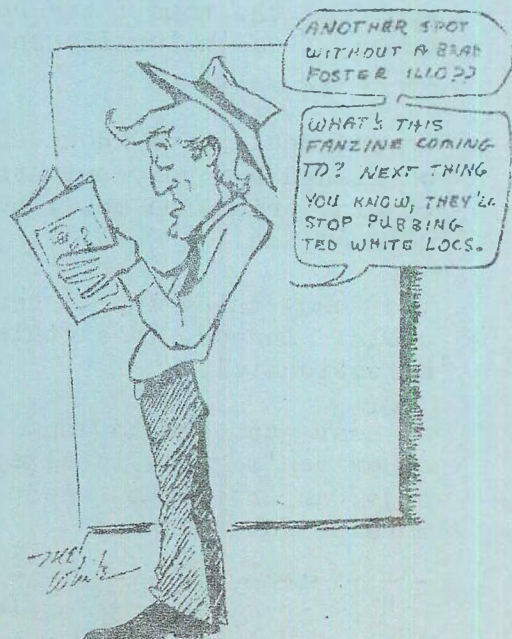 ANOTHER SPOT
WITHOUT A BRAD
FOSTER ILLO??
WHAT'S THIS
FANZINE COMING
TO? NEXT THING
YOU KNOW, THEY'LL
STOP PUBBING
TED WHITE LOCS.